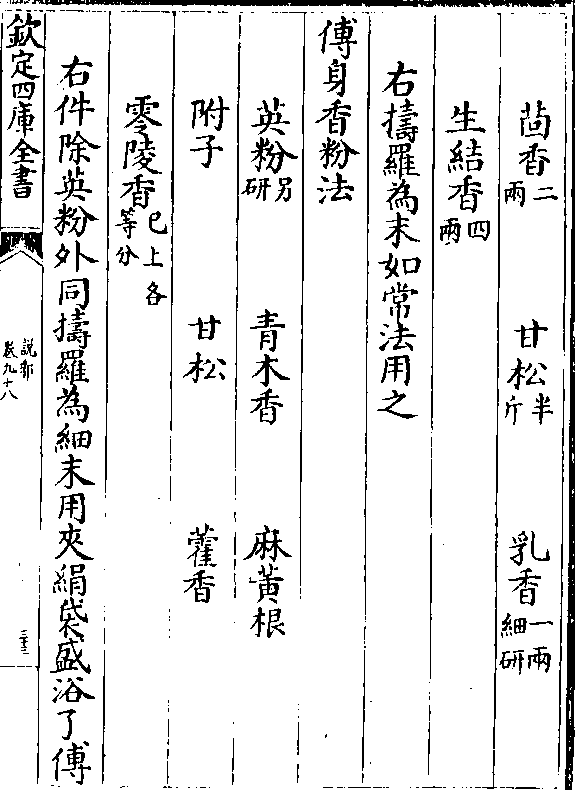 茴香二兩 甘松半斤 乳香一兩細研
生結香四兩
右擣羅為末如常法用之
傅身香粉法
英粉另研 青木香 麻黃根
附子 甘松 藿香
零陵香已上各等分
右件除英粉外同擣羅為細末用夾絹袋盛浴了傅
欽定四庫全書
說郛
卷九十八
三十三